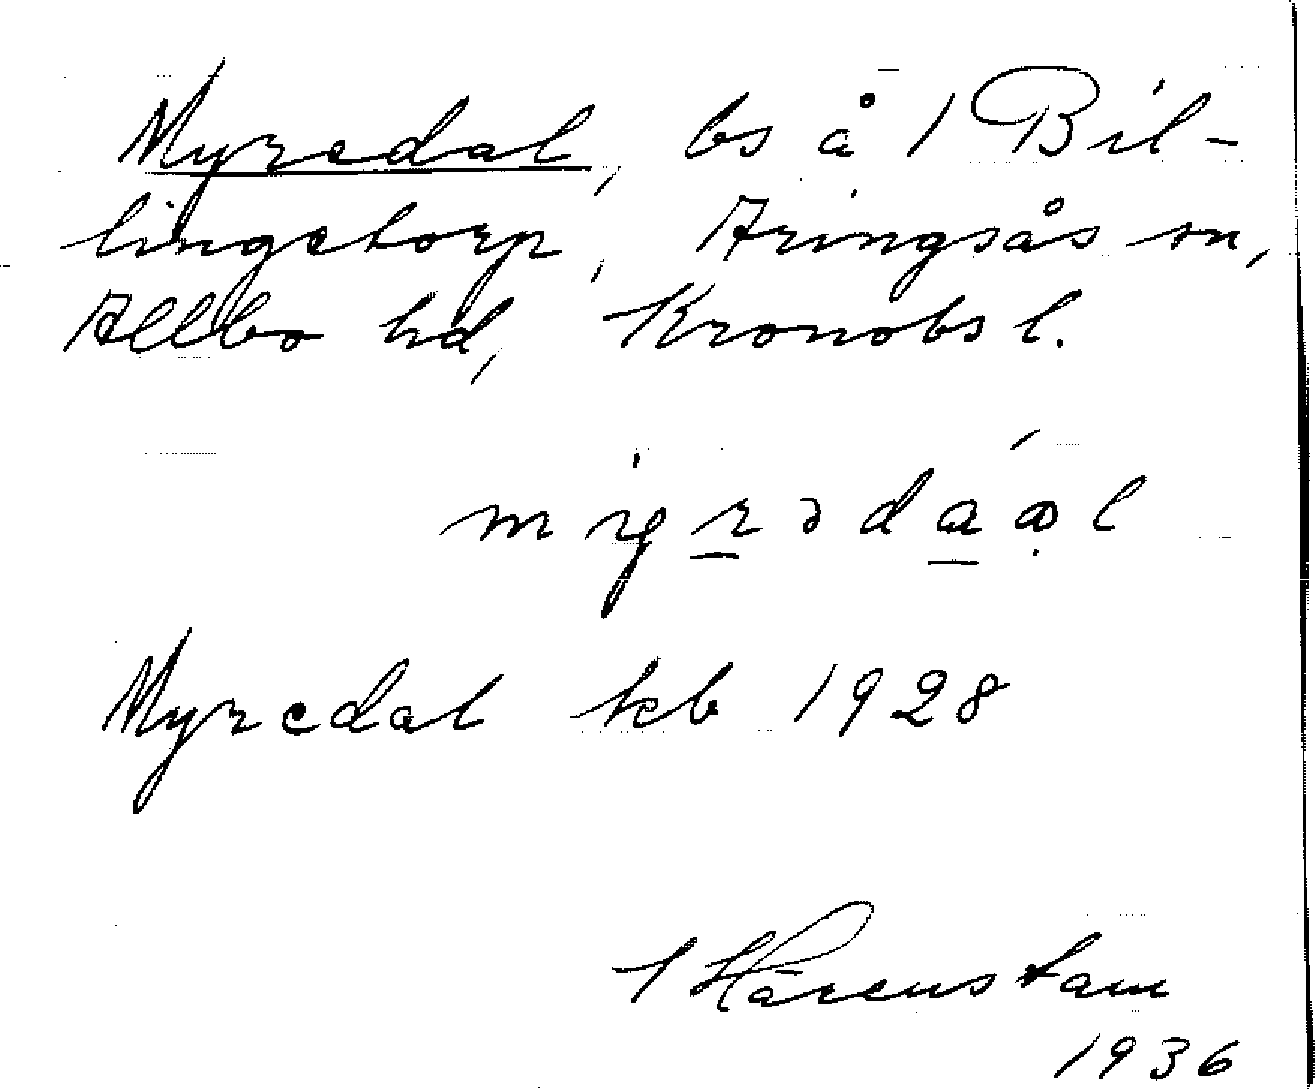 Myredal, bs å 1 Bil-
lingetorp, Aringsås sn,
Allbo hd, Kronobs l.
Myredal kb 1928
Hårenstam
1936